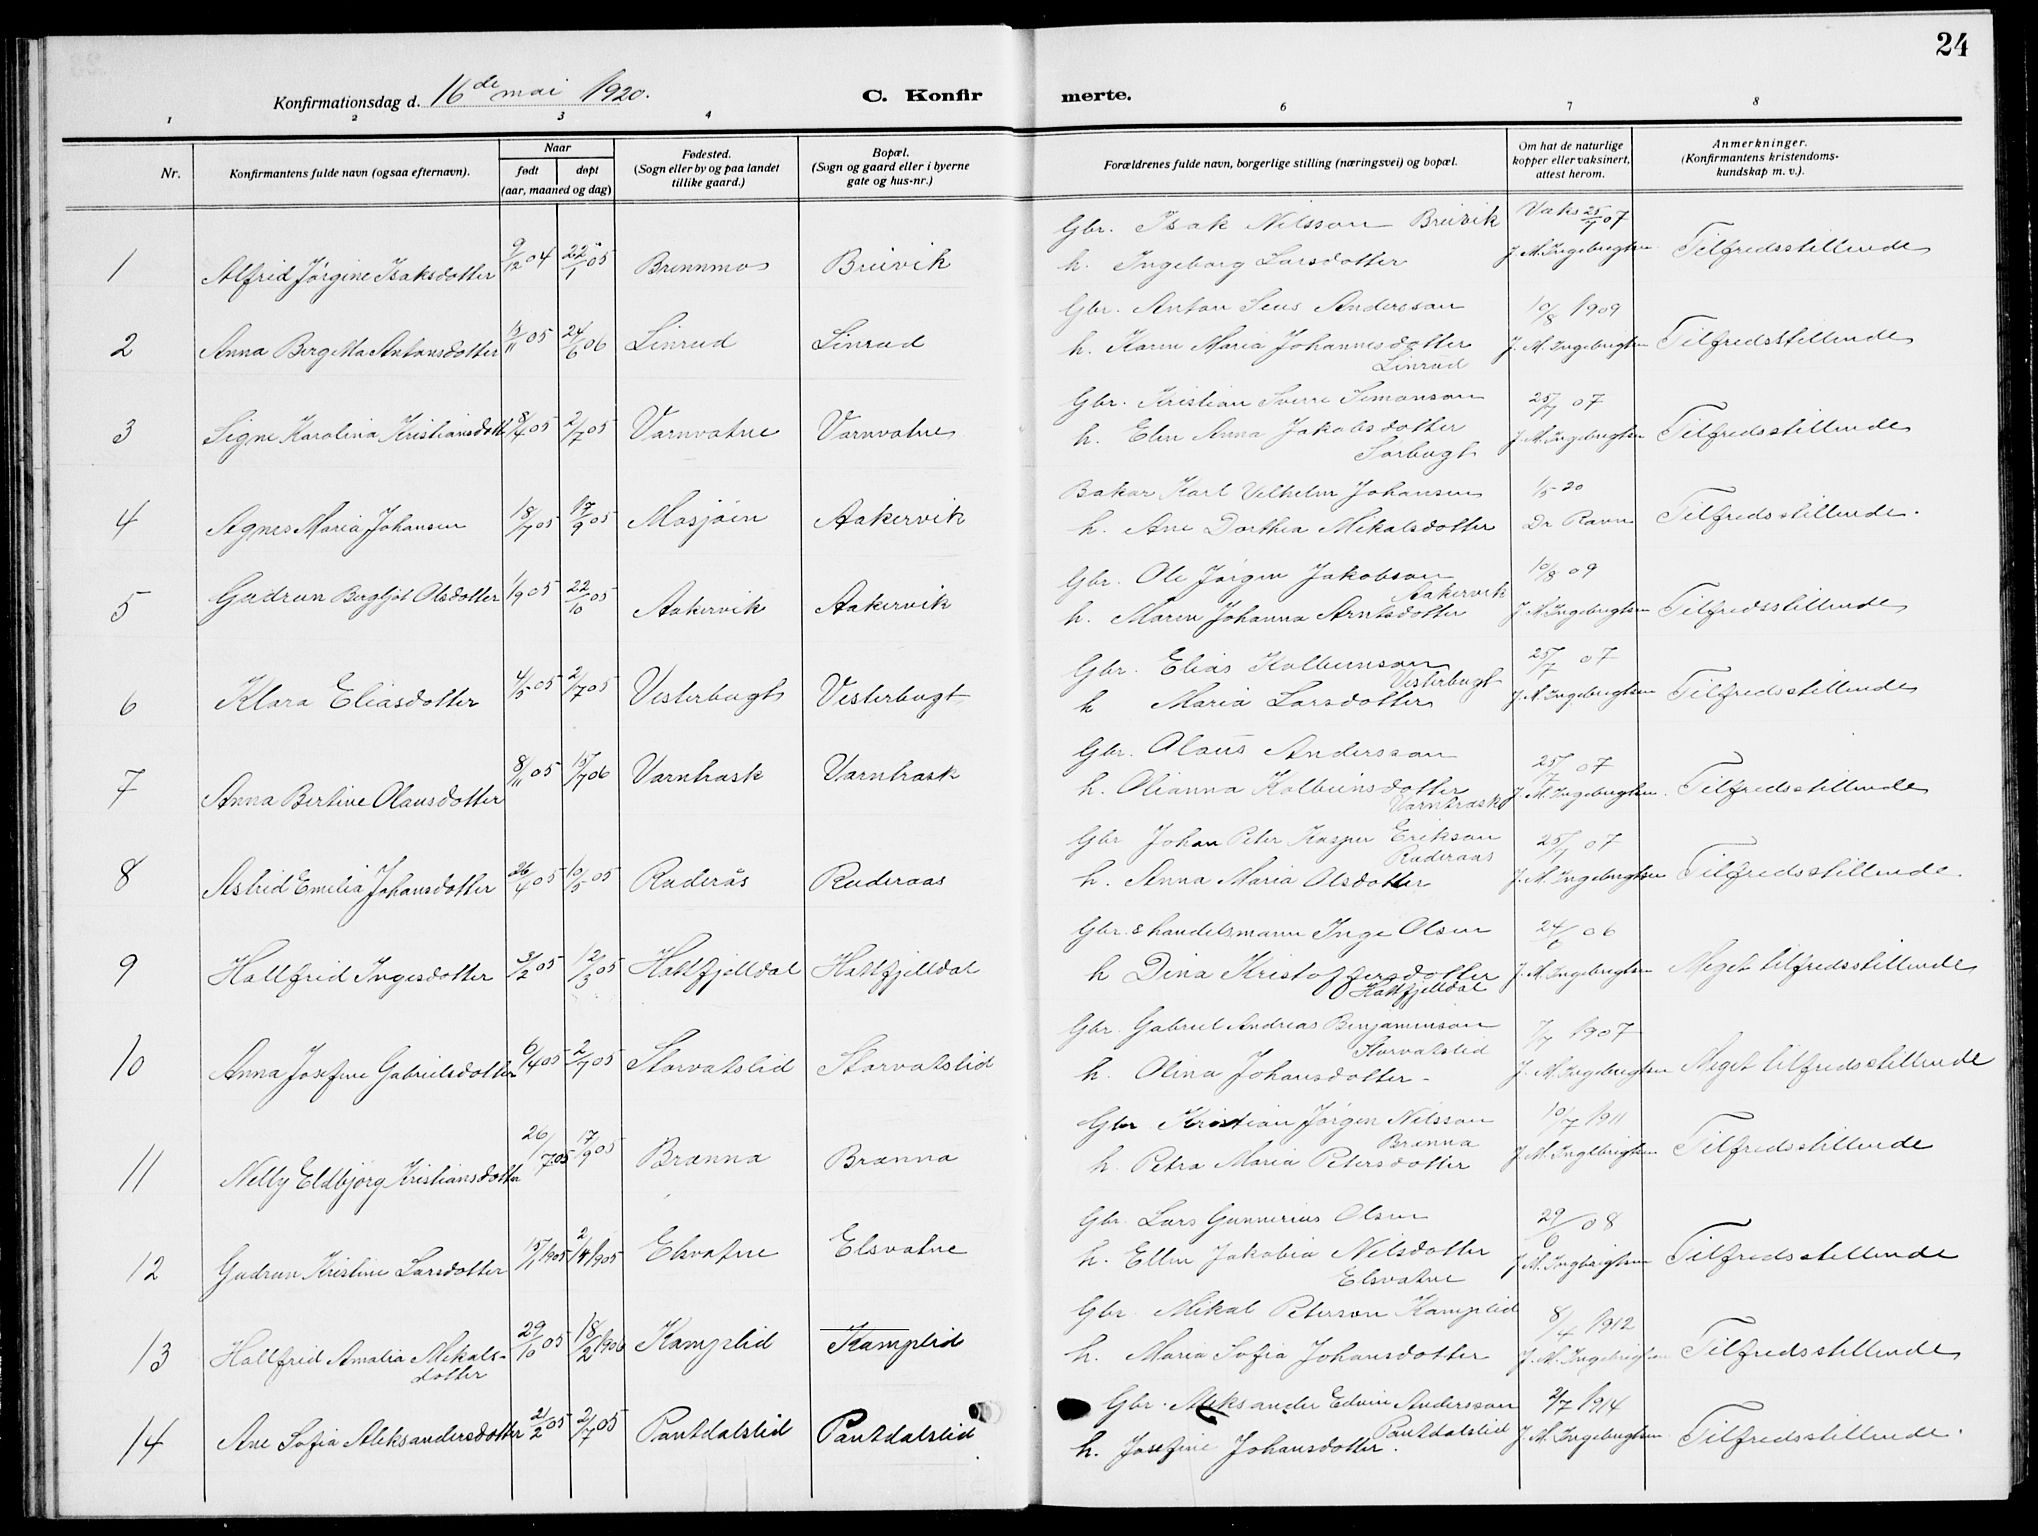 24
Konfirmationsdag d. 16de mai 1920. C. Konfir merte.
1 2 3 4 6 7 8
Nr. Konfirmantens fulde navn (ogsaa efternavn). Naar født døpt (aar, maaned og dag) Fødested. (Sogn eller by og paa landet tillike gaard.) Bopæl. (Sogn og gaard eller i byerne gate og hus-nr.) Forældrenes fulde navn, borgerlige stilling (næringsvei) og bopæl. Om hat de naturlige kopper eller vaksinert, attest herom. Anmerkninger. (Konfirmantens kristendoms-kundskap m. v.).
Gbr. Isak Nilsson Breivik Vaks 25/7 07
1 Alfrid Jørgine Isaksdotter 9/12 04 22/1 05 Brennmo Breivik h. Ingeborg Larsdotter J. M. Ingebrigtsen Tilfredsstillende
Gbr. Anton Seus Andersson 10/8 1909
2 Anna Bergitta Antonsdotter 15/11 05 24/6 06 Linrud Linrud h. Karen Maria Johannesdotter J. M. Ingebrigtsen Tilfredsstillende
Linrud
Gbr. Kristian Sverre Simonson 25/7 07
3 Signe Karolina Kristiansdott 8/4 05 2/7 05 Varnvatne Varnvatne h. Elen Anna Jakobsdotter J. M. Ingebrigtsen Tilfredsstillende
Sørbugt
Bakar Karl Vilhelm Johansen 1/5 20
4 Agnes Maria Johansen 18/7 05 17/9 05 Mosjøen Aakervik h. Ane Dorthea Mikalsdotter Dr Ravn Tilfredsstillende.
Gbr. Ole Jørgen Jakobson 10/8 09
Aakervik
5 Gudrun Bergljot Olsdotter 1/9 05 22/10 05 Aakervik Aakervik h. Maren Johanna Arntsdotter J. M. Ingebrigtsen Tilfredsstillende
Gbr. Elias Kolbeinson 25/7 07
Vesterbugt
6 Klara Eliasdotter 4/5 05 2/7 05 Vesterbugt Vesterbugt h Maria Larsdotter J. M. Ingebrigtsen Tilfredsstillende
Gbr. Olaus Andersson 25/7 07
7 Anna Bertine Olausdotter 8/11 05 15/7 06 Varntrask Varntrask h. Olianna Kolbeinsdotter J. M. Ingebrigtsen. Tilfredsstillende
Varntrask
Gbr Johan Peter Kasper Erikson 25/7 07
Ruderaas
8 Astrid Emilia Johansdotter 26/4 05 10/5 05 Ruderås Ruderaas h. Anna Maria Olsdotter J. M. Ingebrigtsen Tilfredsstillende.
Gbr. & handelsmann Inge Olsen 24/6 06
9 Hallfrid Ingesdotter 3/2 05 12/3 05 Hattfjelldal Hattfjelldal h Dina Kristoffersdotter J. M. Ingebrigtsen Meget tilfredsstillende
Hattfjelldal
Gbr. Gabriel Andreas Benjaminson 7/7 1907
Storvatslid
10 Anna Josefine Gabrielsdotter 6/4 05 2/7 05 Storvatslid Storvatslid h. Olina Johansdotter - J. M. Ingebrigtsen Meget tilfredsstillende
Gbr Kristian Jørgen Nilsson 10/7 1911
Brønna
11 Nelly Eldbjørg Kristiansdotter 26/7 05 17/9 05 Brønna Brønna h. Petra Maria Petersdotter J. M. Ingebrigtsen Tilfredsstillende
Gbr. Lars Gunnerius Olsen 29/6 08
12 Gudrun Kristine Larsdotter 15/1 1905 2/4 1905 Elsvatne Elsvatne h. Ellen Jakobia Nilsdotter J. M. Ingebrigtsen Tilfredsstillende
Elsvatne
Gbr. Mikal Peterson Kamplid 8/4 1912
13 Hallfrid Amalia Mikals-dotter 29/10 05 18/2 1906 Kamplid Kamplid h. Maria Sofia Johansdotter J. M. Ingebrigtsen Tilfredsstillende
Gbr. Aleksander Edvin Andersson 2/7 1914
Pantdalslid
14 Ane Sofia Aleksandersdotter 21/2 05 2/7 05 Pantdalslid Pantdalslid h. Josefine Johansdotter. J. M. Ingebrigtsen Tilfredsstillende.